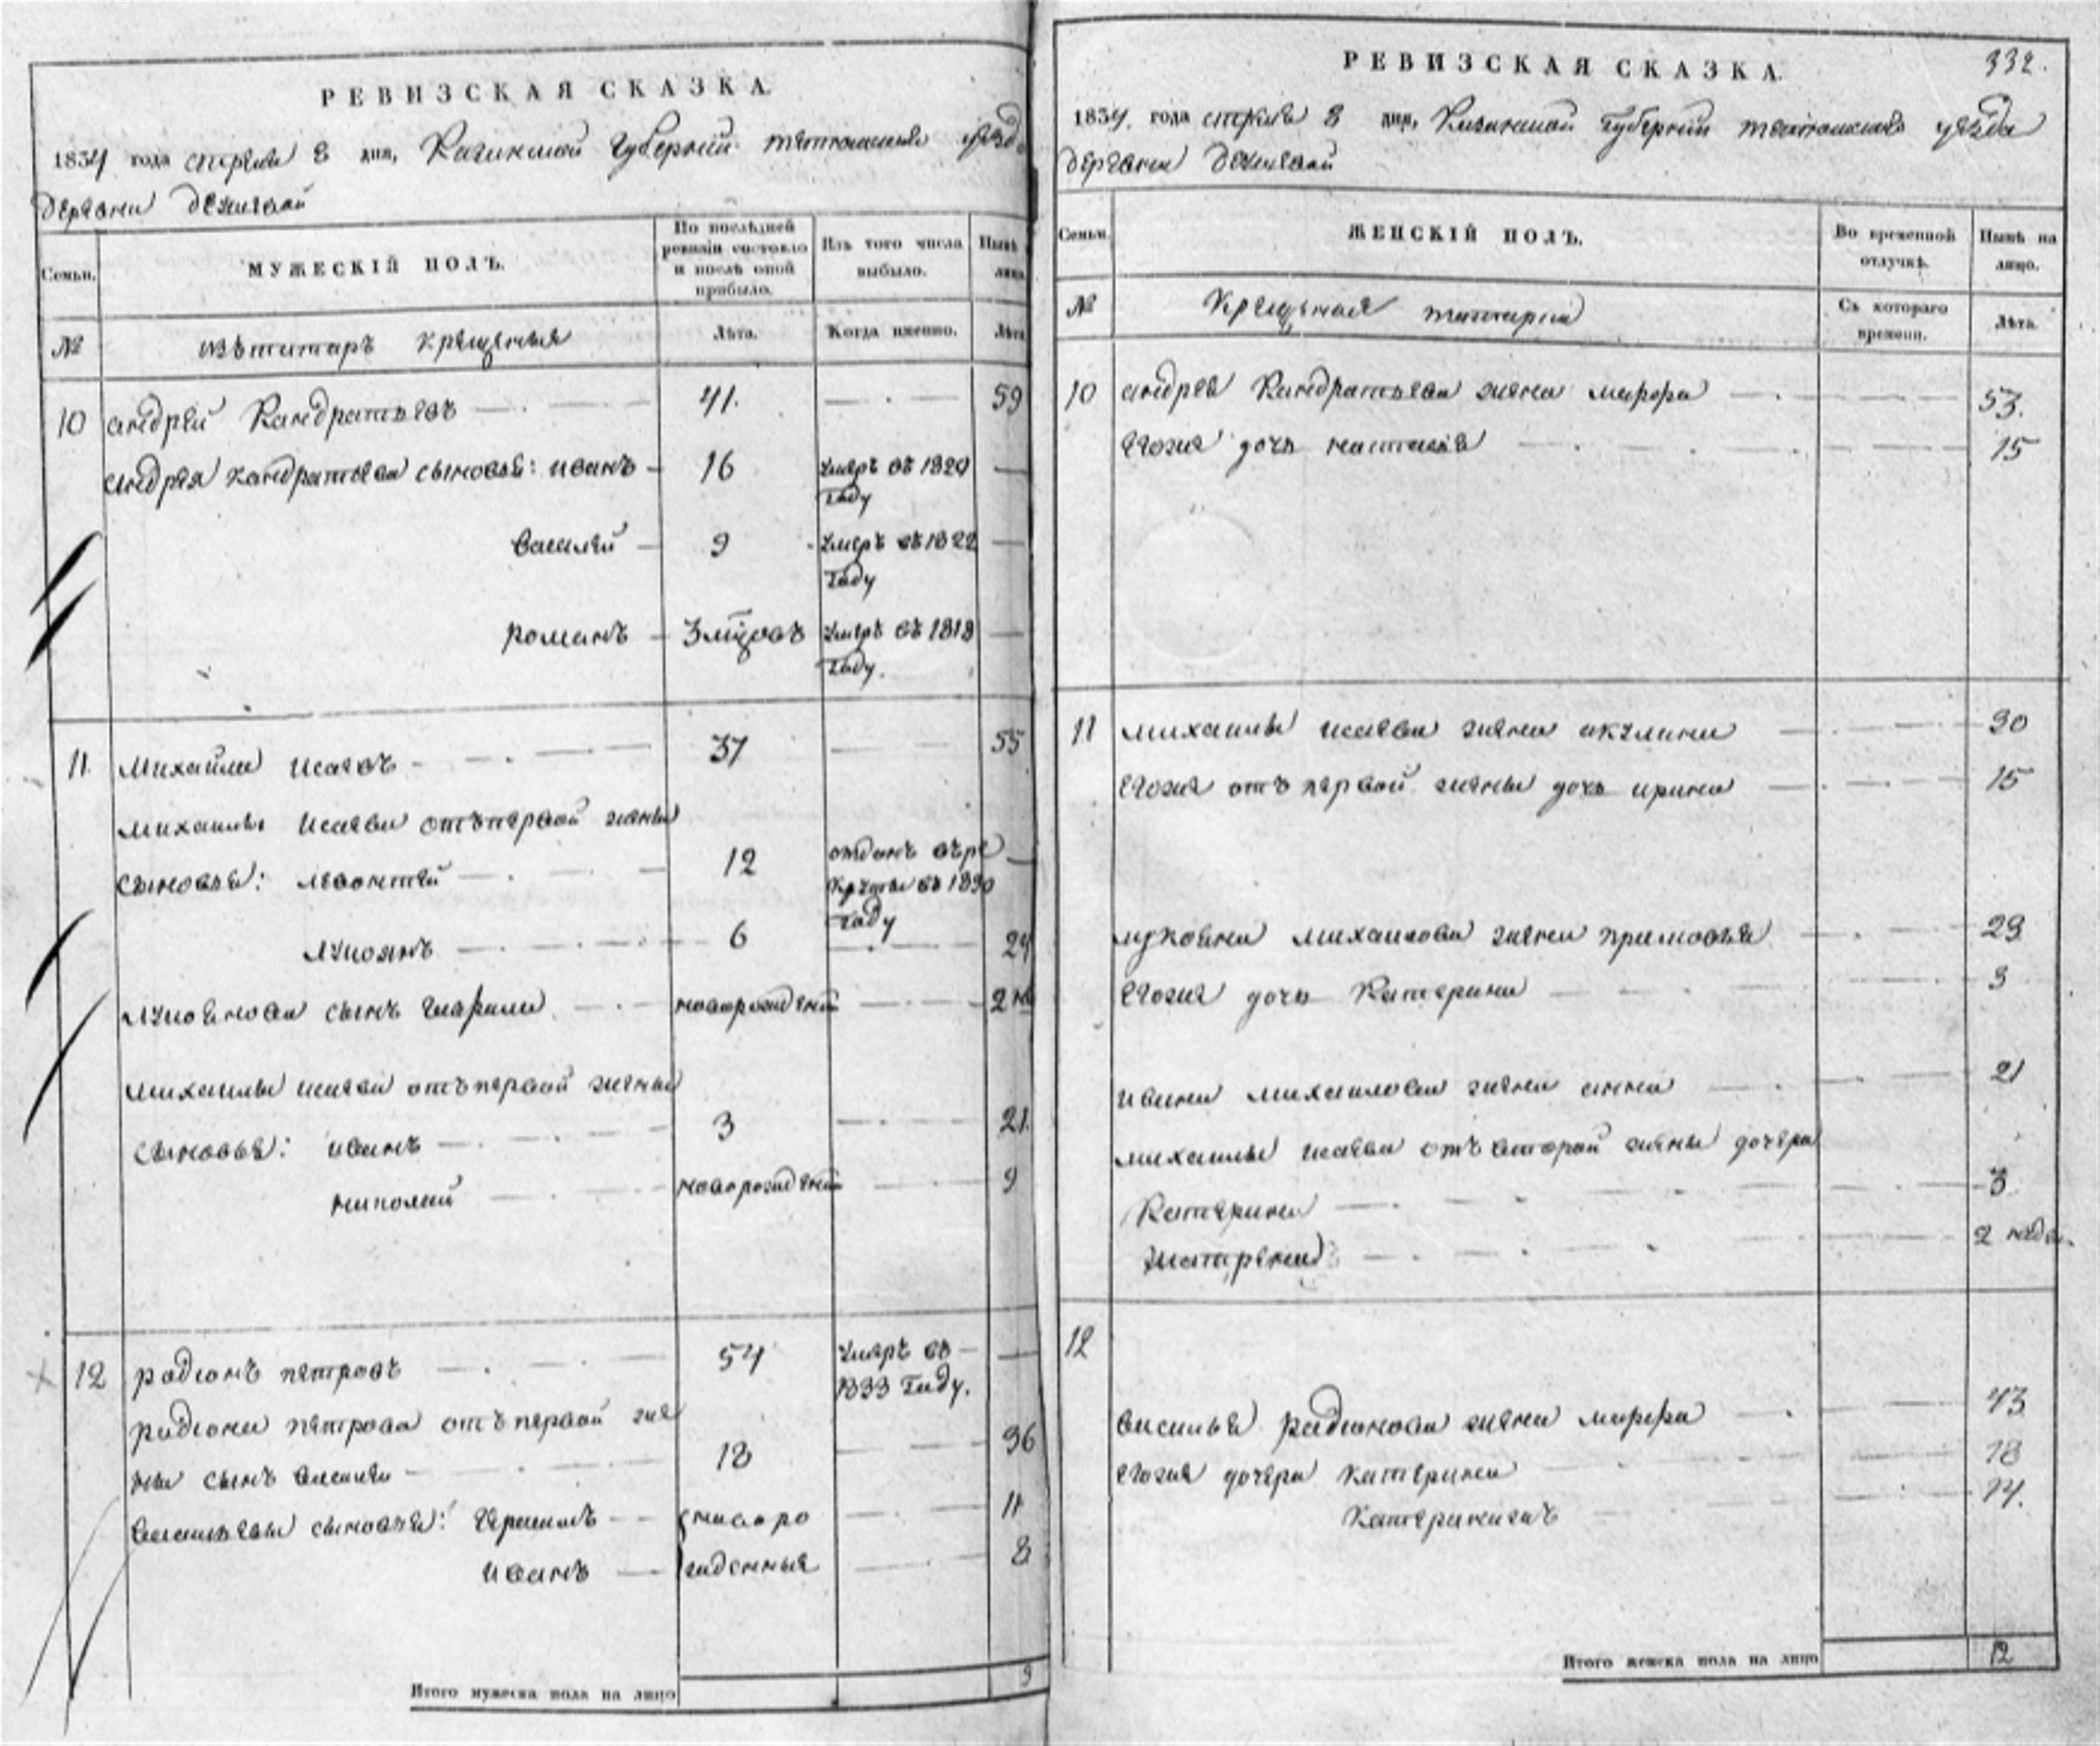 РЕВИЗСКАЯ СКАЗКА.
1834 года апреля 8 дня, Казанской губернии тетюшскаго уезда
деревни
Семьи. МУЖЕСКІЙ ПОЛЪ. По послѣдней ревизіи состояло и послѣ оной прибыло. Изъ того числа выбыло. Нынѣ на лицо
№ изътатаръ крещеныя Лѣта. Когда именно. Лѣта
10 андрей Кандратьевъ 41. 59
андрея кандратьева сыновья: иванъ 16 умеръ въ 1820 году
василей 9 умеръ въ 1822 году
романъ 3 мцовъ умеръ въ 1818 году.
11. Михайла исаевъ 37 55
михаилы исаева отъпервой жены
сыновья: левонтей 12 отданъ въре круты въ 1830 году
лукоянъ 6 24
лукоянова сынъ гаврила новорожденой 2 не
михаилы исаева отъпервой жены
сыновья: иванъ 3 21.
николай новорожденой 9
12 радионъ петровъ 54 умеръ въ 1833 году.
радиона петрова отъ первой же
ны сынъ василей 18 36
васильевы сыновья: герасимъ новоро 11
иванъ жденныя 8
Итого мужеска пола на лицо 9
РЕВИЗСКАЯ СКАЗКА. 332.
1834. года апреля 8 дня, Казанской Губернии тетюшскаго уезда
деревни
Семьи. ЖЕНСКІЙ ПОЛЪ. Во временной отлучкѣ. Нынѣ на лицо.
№ Крещеныя татарки Съ котораго времени. Лѣта.
10 андрея Кандратьева жена марфа 53.
евожа дочь настасья 15
11 михаилы исаева жена акулина 30
евожа отъ первой жены дочь ирина 15
лукояна михаилова жена прасковья 29
евожа дочь Катерина 3
ивана михаилова жена анна 21
михаилы исаева отъ второй жены дочери
Катерина 3
матрена 2 неде.
12
василья радионова жена марфа 43
евожа дочери катерина 18
14.
Итого женска пола на лицо 12